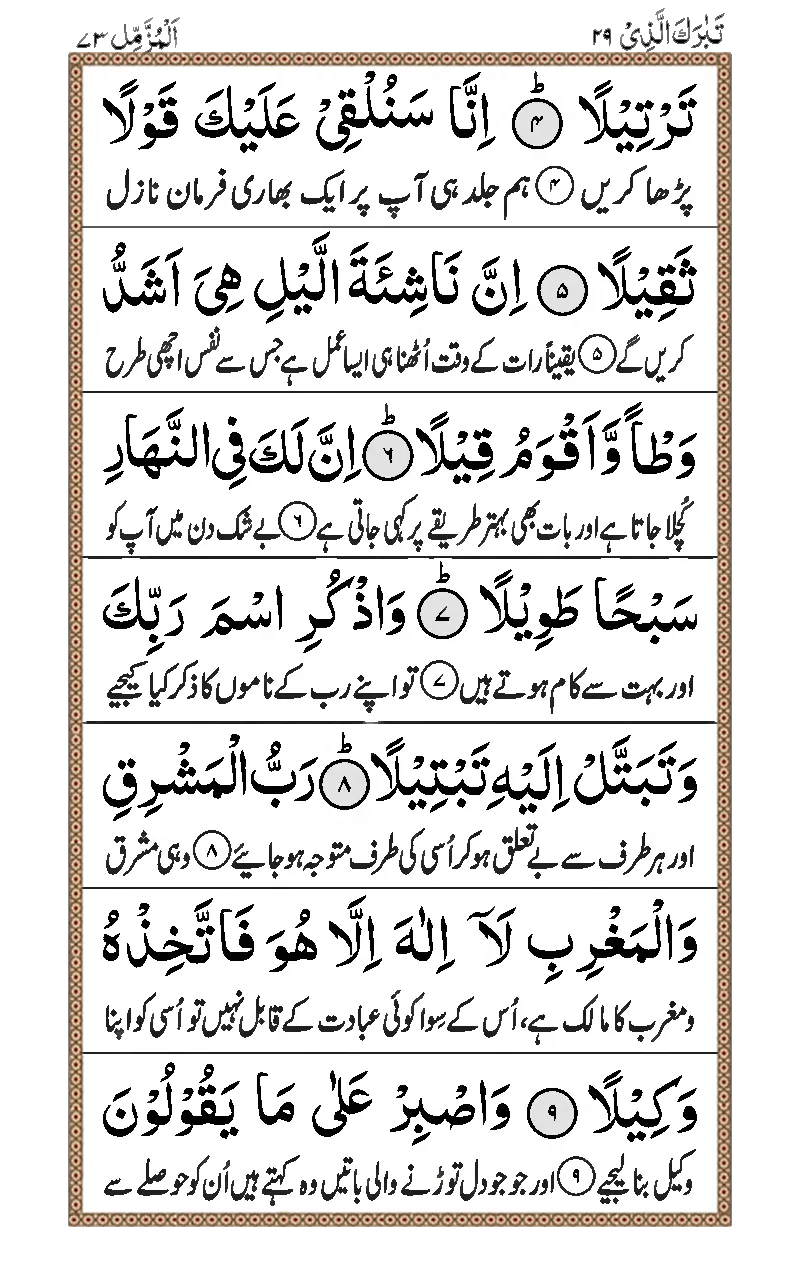 تَبٰرَكَ الَّذِیْ ٢٩
اَلْمُزَّمِّل ٧٣
تَرْتِیْلًا ؕ﴿۴﴾ اِنَّا سَنُلْقِیْ عَلَیْكَ قَوْلًا
پڑھا کریں ﴿۴﴾ ہم جلد ہی آپ پر ایک بھاری فرمان نازل
ثَقِیْلًا ﴿۵﴾ اِنَّ نَاشِئَةَ الَّیْلِ هِیَ اَشَدُّ
کریں گے ﴿۵﴾ یقیناً رات کے وقت اُٹھنا ہی ایسا عمل ہے جس سے نفس اچھی طرح
وَطْاً وَّاَقْوَمُ قِیْلًا ؕ﴿۶﴾ اِنَّ لَكَ فِی النَّهَارِ
کُچلا جاتا ہے اور بات بھی بہتر طریقے پر کہی جاتی ہے ﴿۶﴾ بے شک دن میں آپ کو
سَبْحًا طَوِیْلًا ؕ﴿۷﴾ وَاذْكُرِ اسْمَ رَبِّكَ
اور بہت سے کام ہوتے ہیں ﴿۷﴾ تو اپنے رب کے ناموں کا ذکر کیا کیجیے
وَتَبَتَّلْ اِلَیْهِ تَبْتِیْلًا ؕ﴿۸﴾ رَبُّ الْمَشْرِقِ
اور ہر طرف سے بے تعلق ہو کر اُسی کی طرف متوجہ ہو جائیے ﴿۸﴾ وہی مشرق
وَالْمَغْرِبِ لَاۤ اِلٰهَ اِلَّا هُوَ فَاتَّخِذْهُ
ومغرب کا مالک ہے، اُس کے سِوا کوئی عبادت کے قابل نہیں تو اُسی کو اپنا
وَكِیْلًا ﴿۹﴾ وَاصْبِرْ عَلٰی مَا یَقُوْلُوْنَ
وکیل بنا لیجیے ﴿۹﴾ اور جو جو دل توڑنے والی باتیں وہ کہتے ہیں اُن کو حوصلے سے